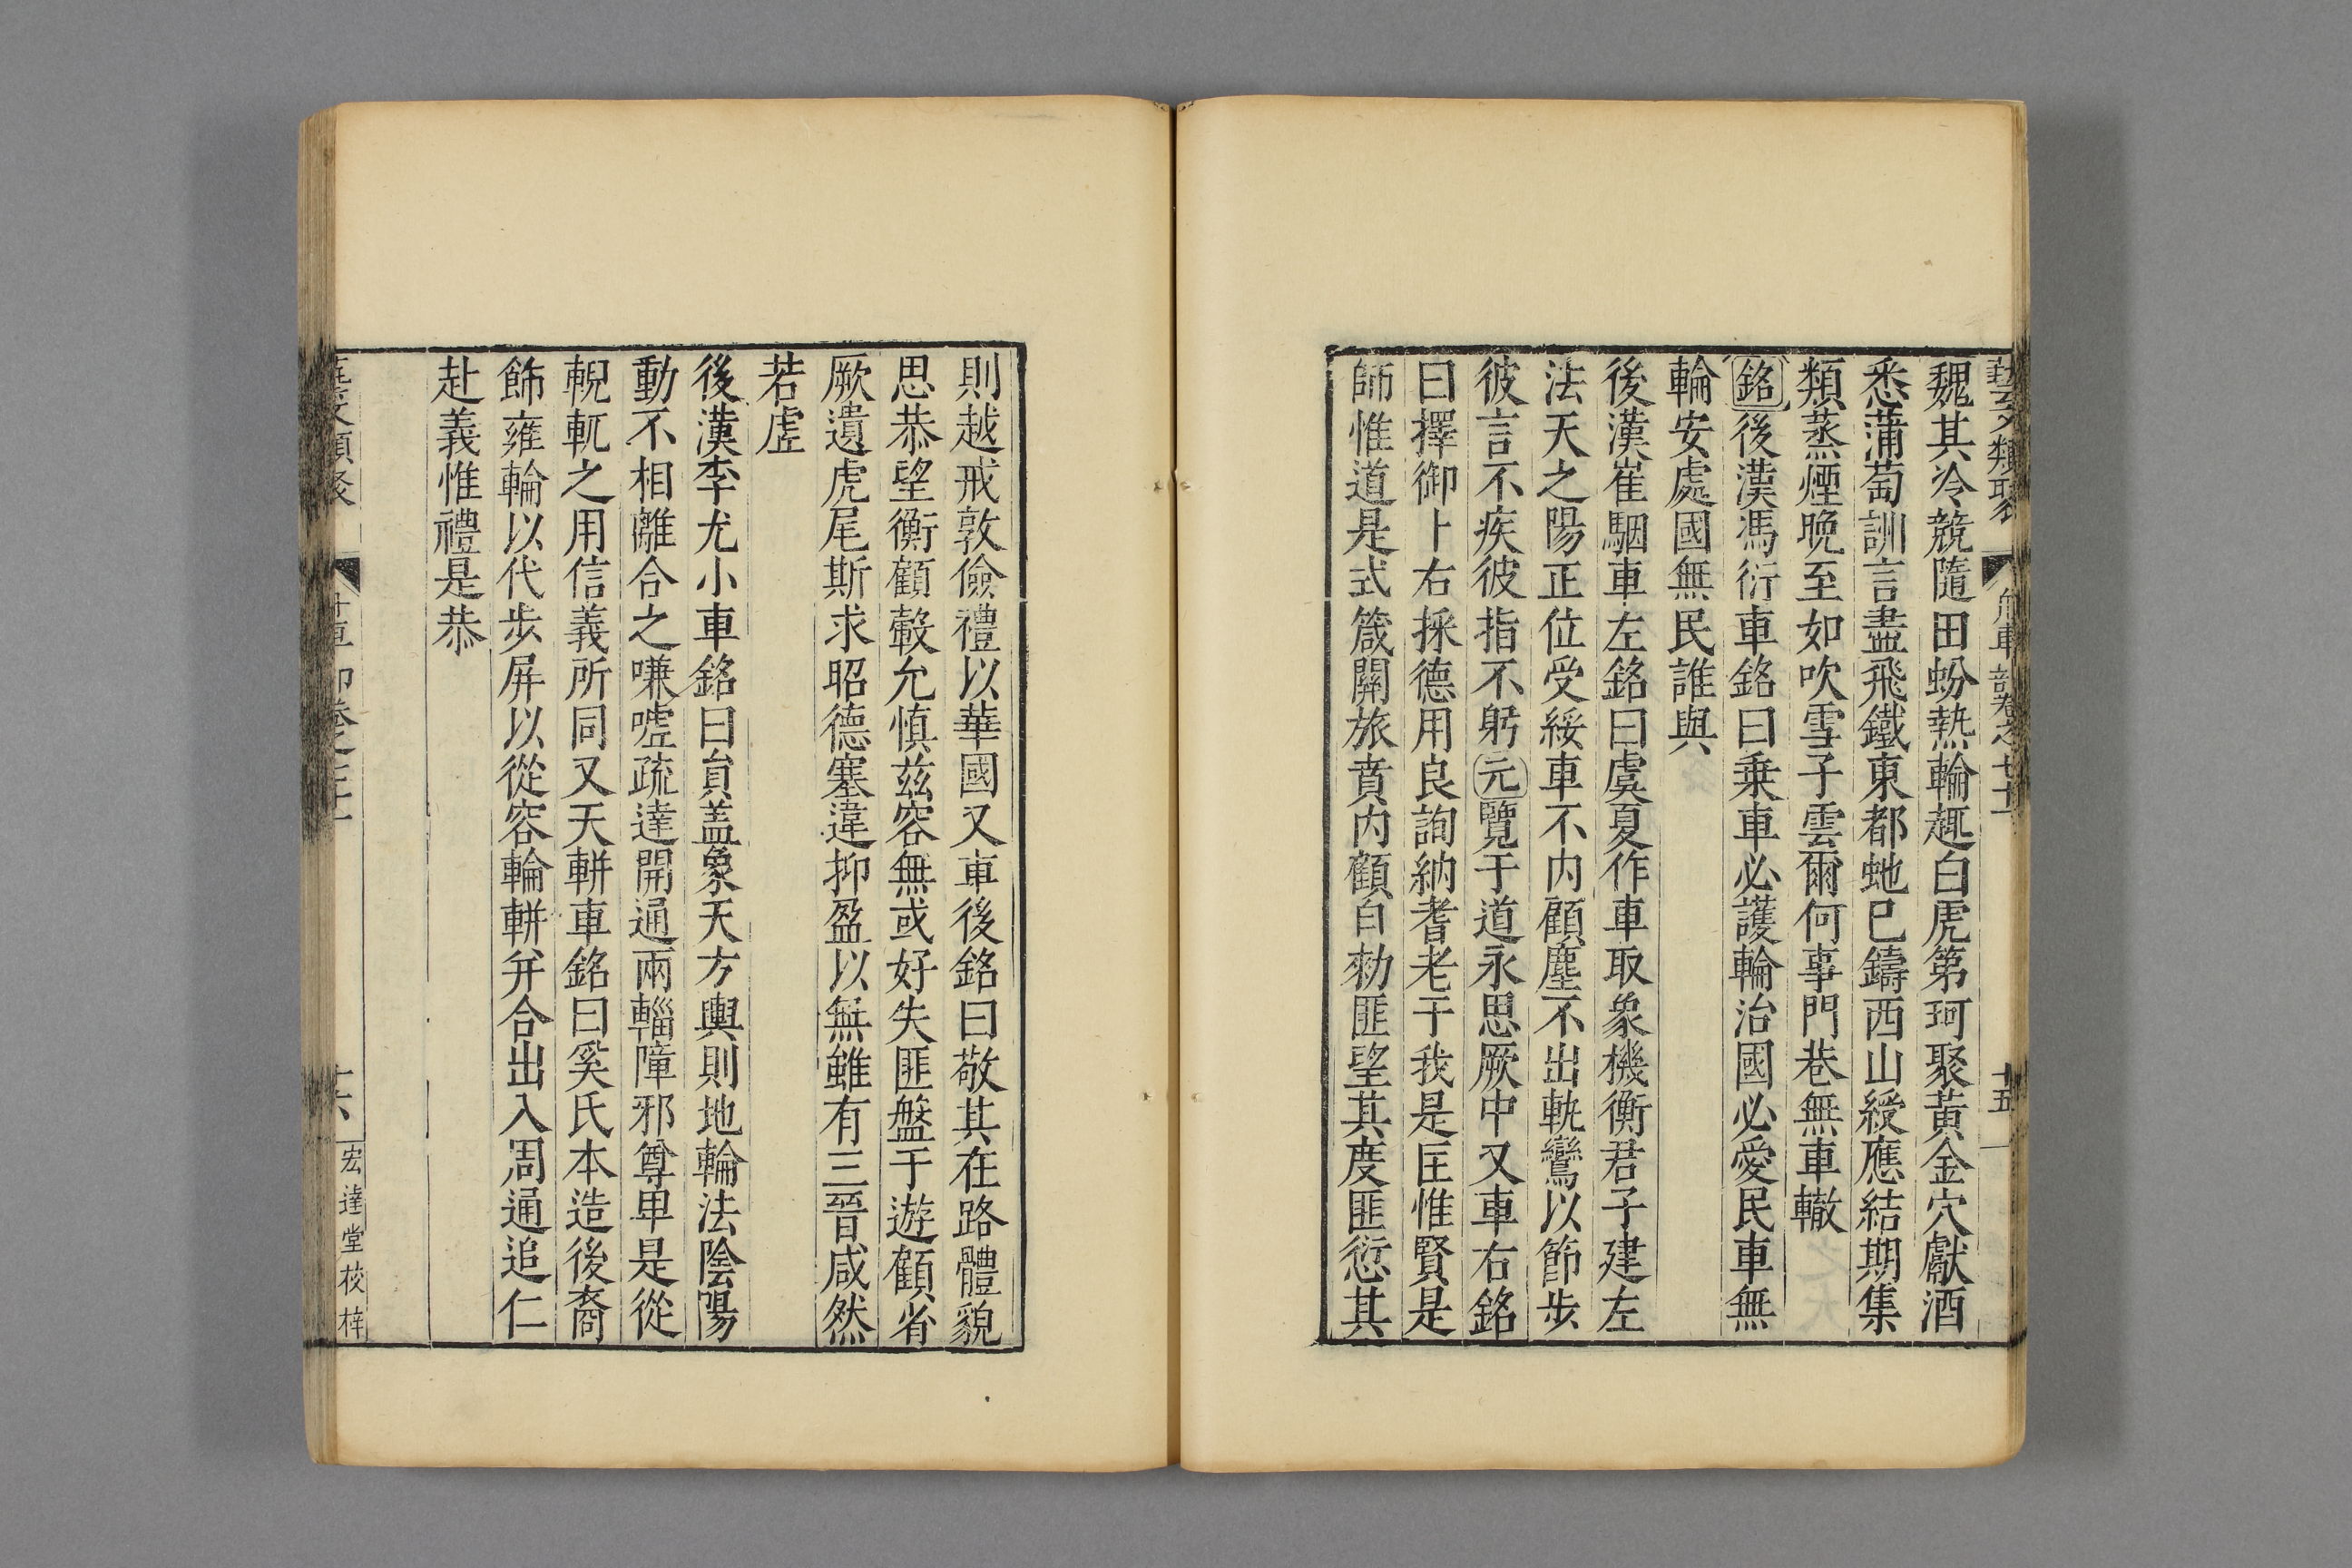 魏其冷競隨田蚡熱輪趣白虎第珂聚黃金穴獻酒
悉蒲萄訓言盡飛鐵東都虵巳鑄西山綬應結期集
類蒸煙晩至如吹雪子雲爾何事門巷無車轍
銘後漢馮衍車銘曰乗車必護輪治國必愛民車無
輪安處國無民誰與
後漢崔駰車左銘曰虞夏作車取象機衡君子建左
法天之陽正位受綏車不内顧塵不出軌鸞以節步
彼言不疾彼指不躬元覽于道永思厥中又車右銘
曰擇御卜右採德用良詢納耆老于我是匡惟賢是
師惟道是式箴闕旅賁内顧自勑匪望其度匪愆其
則越戒敦儉禮以華國又車後銘曰敬其在路體貌
思恭望衡顧轂允慎茲容無或好失匪盤于遊顧省
厥遺虎尾斯求昭德塞違抑盈以無雖有三晉咸然
若虛
後漢李尤小車銘曰員盖象天方輿則地輪法陰陽
動不相離合之嗛嘘疏達開通兩轓障邪尊卑是從
輗軏之用信義所同又天軿車銘曰奚氏本造後裔
飾雍輪以代步屏以從容輪軿并合出入周通追仁
赴義惟禮是恭
宏達堂校梓